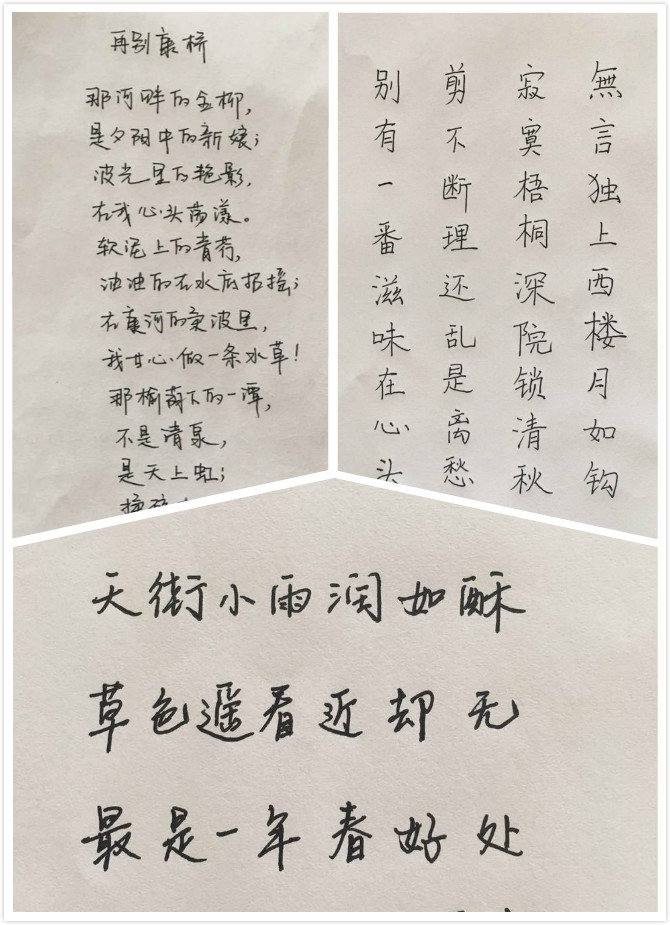 再别康桥
那河畔的金柳，
是夕阳中的新娘；
波光里的艳影，
在我心头荡漾。
软泥上的青荇，
油油的在水底招摇；
在康河的柔波里，
我甘心做一条水草！
那榆荫下的一潭，
不是清泉，
是天上虹；
無言独上西楼月如钩
寂寞梧桐深院锁清秋
剪不断理还乱是离愁
别有一番滋味在心头
天街小雨润如酥
草色遥看近却无
最是一年春好处